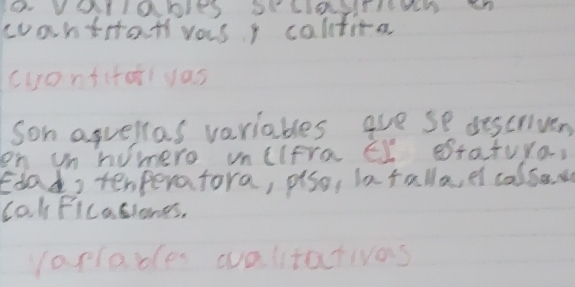 a variables se clasifican en
cuantitati vas y calitita
cuantitati vas
Son aquellas variables que se descriven
en un número un cifra EJ estatura,
Edad, tenperatora, piso, la talla, el
calificasiones.
variables cualitativas